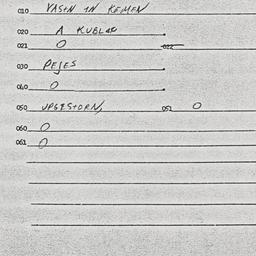 010 YASIN IN KEMEN
020 A KUBLAE
021 O 022
030 PEJES
040 O
050 UPGISTORN, 051 O
060 O
061 O